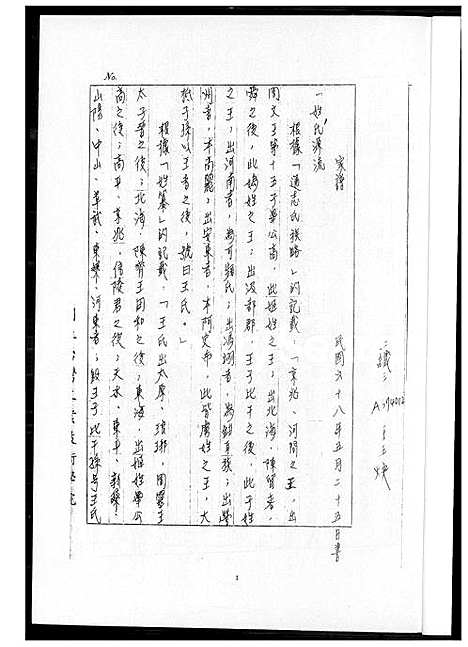 No.
家譜
民國六十八年五月二十五日書
一姓氏源流
根據「通志氏族略」的記載，「京兆、河間之王，出
周文王第十五子畢公高，此姬姓之王；出北海，陳留者，
舜之後，此媯姓之王；出汲郡郡，王子比干之後，此子姓
之王；出河南者，為可頻氏；出馮翊者，為鉗耳族；出營
州者，本高麗；出安東者，本阿史布，此皆虜姓之王，大
抵子孫以王者之後，號曰王氏。」
根據「姓纂」的記載，「王氏出太原、琅琊，周靈王
太子晉之後；北海，陳胃王田和之後；東海，出姬姓畢公
高之後；高平、京兆，信陵君之後；天水、東平、新蔡、
山陽、中山、章武、東萊、河東者；殷王子比干孫号王氏
1